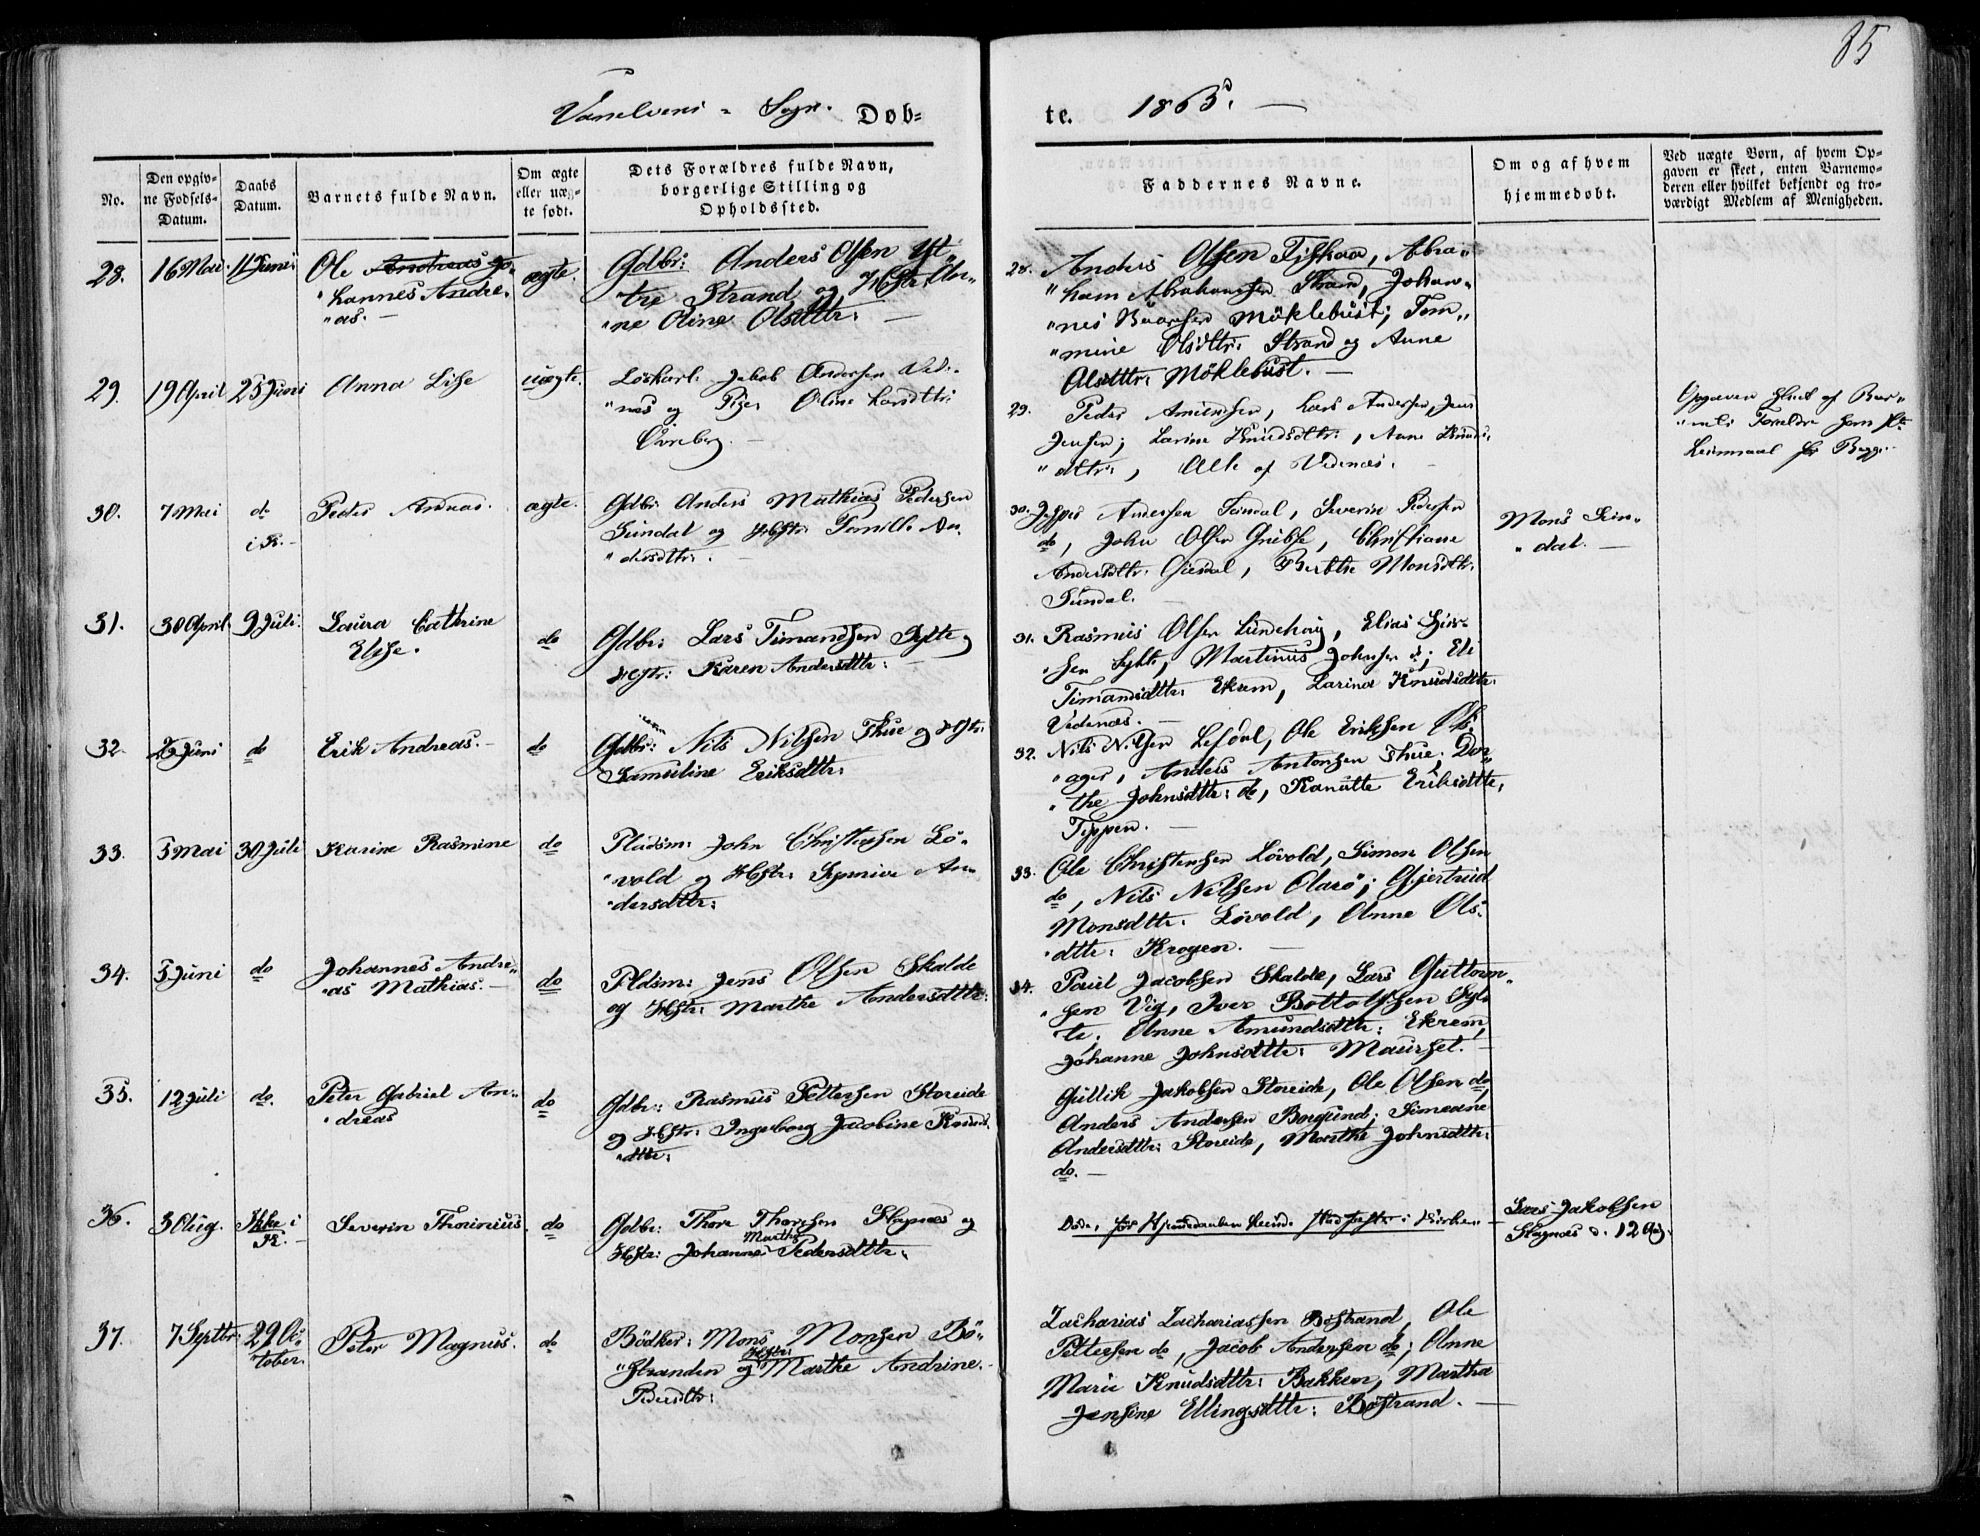 85
Vanelvens - Sogn. Døb=
te. 1865.
No.
Den opgiv=
ne Fødsels=
Datum.
Daabs
Datum.
Barnets fulde Navn.
Om ægte
eller uæg=
te født.
Dets Forældres fulde Navn,
borgerlige Stilling og
Opholdssted.
Faddernes Navne.
Om og af hvem
hjemmedøbt.
Ved uægte Børn, af hvem Op=
gaven er skeet, enten Barnemo=
deren eller hvilket bekjendt og tro=
værdigt Medlem af Menigheden.
28. 16 Mai 11 Juni Ole Andreas Jo„
„hannes Andre„
„as. —
ægte.
Gdbr: Anders Olsen Yt„
„tre Strand og Hstr: An„
„ne Oline Olsdttr: —
28. Anders Olsen Fiskaa, Abra„
„ham Abrahamsen Strand, Johan„
„nes Møklebust; Tom„
„mine Olsdttr: Strand og Anne
Olsdttr: Möklebust. —
29. 19 April 25 Juni Anna Lisse uægte.
Löskarl: Jakob Andersen Ved„
„nes og Pige: Oline Larsdttr:
Övreberg. —
29. Peder Amundsen, Lars Andersen, Jens
Jensen; Larine Knudsdttr:, Anne Knuds„
„dttr:, Alle af Vedenæs.
Opgaven skeet af Bar„
„nets Forældre som
Leiermaal for Begge.
30. 7 Mai do
i K. —
Peder Andreas. ægte.
Gdbr: Anders Mathias Pedersen
Sundal og Hstr: Pernille An„
„dersdttr:.
30. Jesper Andersen Sundal, Severin Pedersen
do, John Olsen Christiane
Andersdttr: Berthe Monsdttr:
Sundal.
Mons Sun„
„dal. —
31. 30 April 9 Juli Laura Cathrine
Elise.
do
Gdbr: Lars Timandsen Sylte og
Hstr: Karen Andersdttr: —
31. Rasmus Olsen Lundehoug, Elias
„sen Sylte, Martinus Johnsen do; Eli
Timansdttr: Ekrem, Larina Knudsdttr:
Vedenæs. —
32. 23 Juni do Erik Andreas. — do
Gdbr: Nils Nilsen Thue og Hstr:
Samuline Eriksdttr:
32. Nils Nilsen Lefdal, Ole Eriksen
„ager, Anders Antonsen Thue; Dor„
„the Johnsdttr: do, Kanutte Eriksdttr:
Tippen. —
33. 5 Mai 30 Juli Karine Rasmine do
Pladsm: John Christensen Lö„
„vold og Hstr: An„
„dersdttr:
33. Ole Christensen Lövold, Simon Olsen
do, Nils Nilsen Aarö; Gjertrud
Monsdttr: Lövold, Anne Ols„
„dttr: Krogen. —
34. 5 Juni do Johannes Andre„
„as Mathias. —
do
Pldsm: Jens Olsen Skalde
og Hstr: Marthe Andersdttr:
34. Poul Jacobsen Skalde, Lars Guttorm„
„sen Vig, Iver Bottolfsen Syl„
te; Anne Amundsdttr: Ekrem,
Johanne Johnsdttr: Maurset. —
35. 12 Juli do. Peter Gabriel An„
„dreas
do
Gdbr: Rasmus Pettersen Storeide
og Hstr: Ingeborg Jacobine Knuds„
„dttr:
Gullik Jakobsen Storeide, Ole Olsen do,
Anders Andersen Borgund; Simeane
Andersdttr: Storeide, Marthe Johnsdttr:
do. —
36. 3 Aug. Ikke i
K. —
Severin Thorinius. do
Gdbr: Thore Thoresen Slagnæs og
Hstr: Johanne Marthe Pedersdttr:
Døde, før Hjemmedaaben kunde Stadfestes i Kirken —
Lars Jakobsen
Slagnæs d. 12 Aug.
37. 7 Septbr: 29 Oc„
„tober.
Peter Magnus. do
Bödker: Mons Monsen Bö„
„stranden og Hstr: Marthe Andrine
Pedersdttr:
Zacharias Zachariassen Böstrand, Ole
Pettersen do, Jacob Andersen do; Anne
Marie Knudsdttr: Bakken, Martha
Jensine Ellingsdttr: Böstrand. —